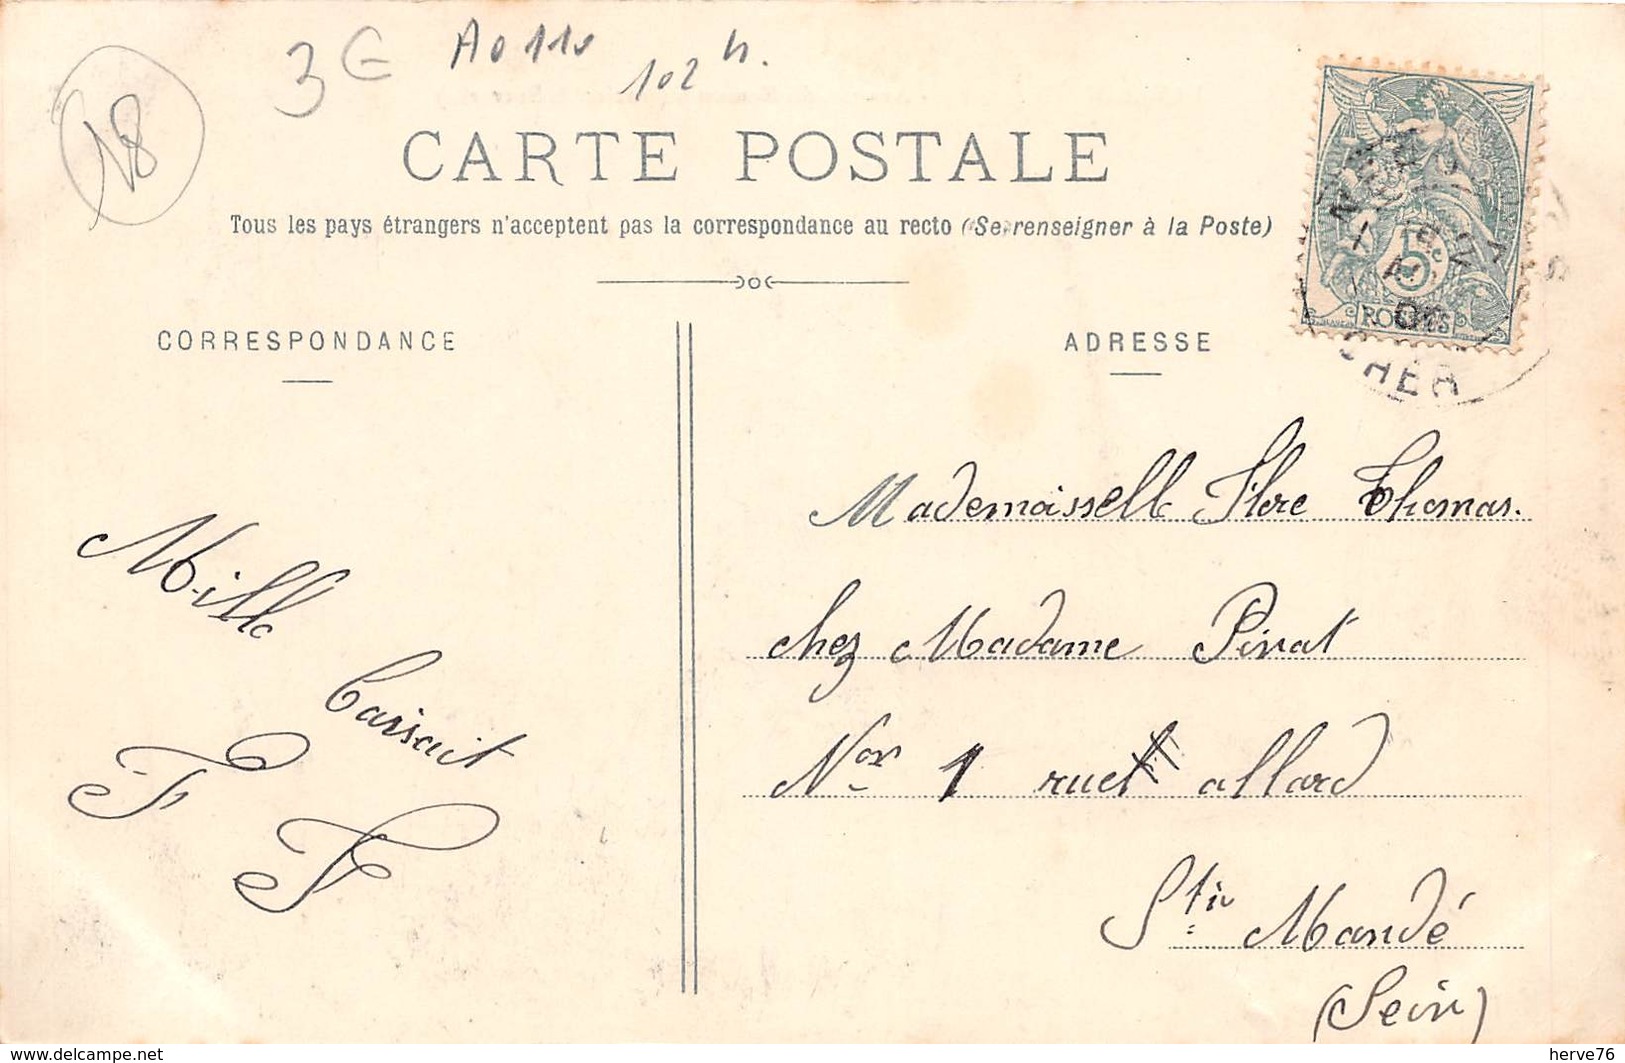 18
3 €
A0110
102 h.
CARTE POSTALE
Tous les pays étrangers n'acceptent pas la correspondance au recto (Se renseigner à la Poste)
CORRESPONDANCE
ADRESSE
5
POSTES
CHER
Mademoisselle Flore Thomas.
chez Madame Pinat
Nor 1 rue allard
Stie Mandé
(Sein)
Mille
Baisait
F F
delcampe.net
herve76